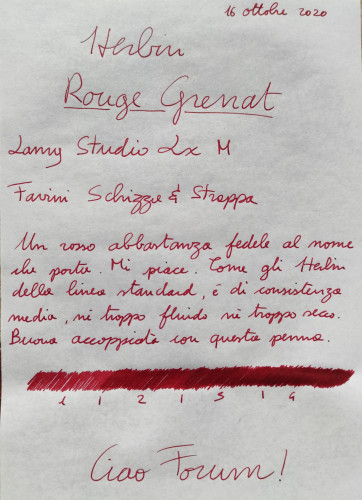 16 ottobre 2020
Herbin
Rouge Grenat
Lamy Studio Lx M
Favini Schizza & Strappa
Un rosso abbastanza fedele al nome
che porta. Mi piace. Come gli Herbin
della linea standard, è di consistenza
media, né troppo fluido né troppo secco.
Buona accoppiata con questa penna.
1 1 2 1 3 1 4
Ciao Forum!